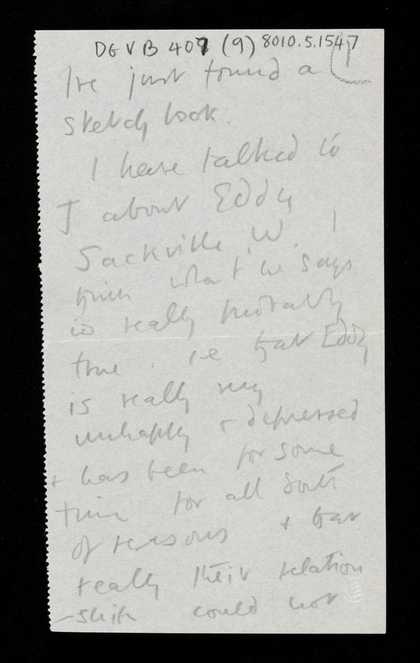 DGVB 407 (9) 8010.5.1547
I've just found a
sketch book.
I have talked to
J about Eddy
Sackville W. I
think what he says
is really probably
true. ie that Eddy
is really very
unhappy & depressed
& has been for some
time for all sorts
of reasons & that
really their relation
-ship could not